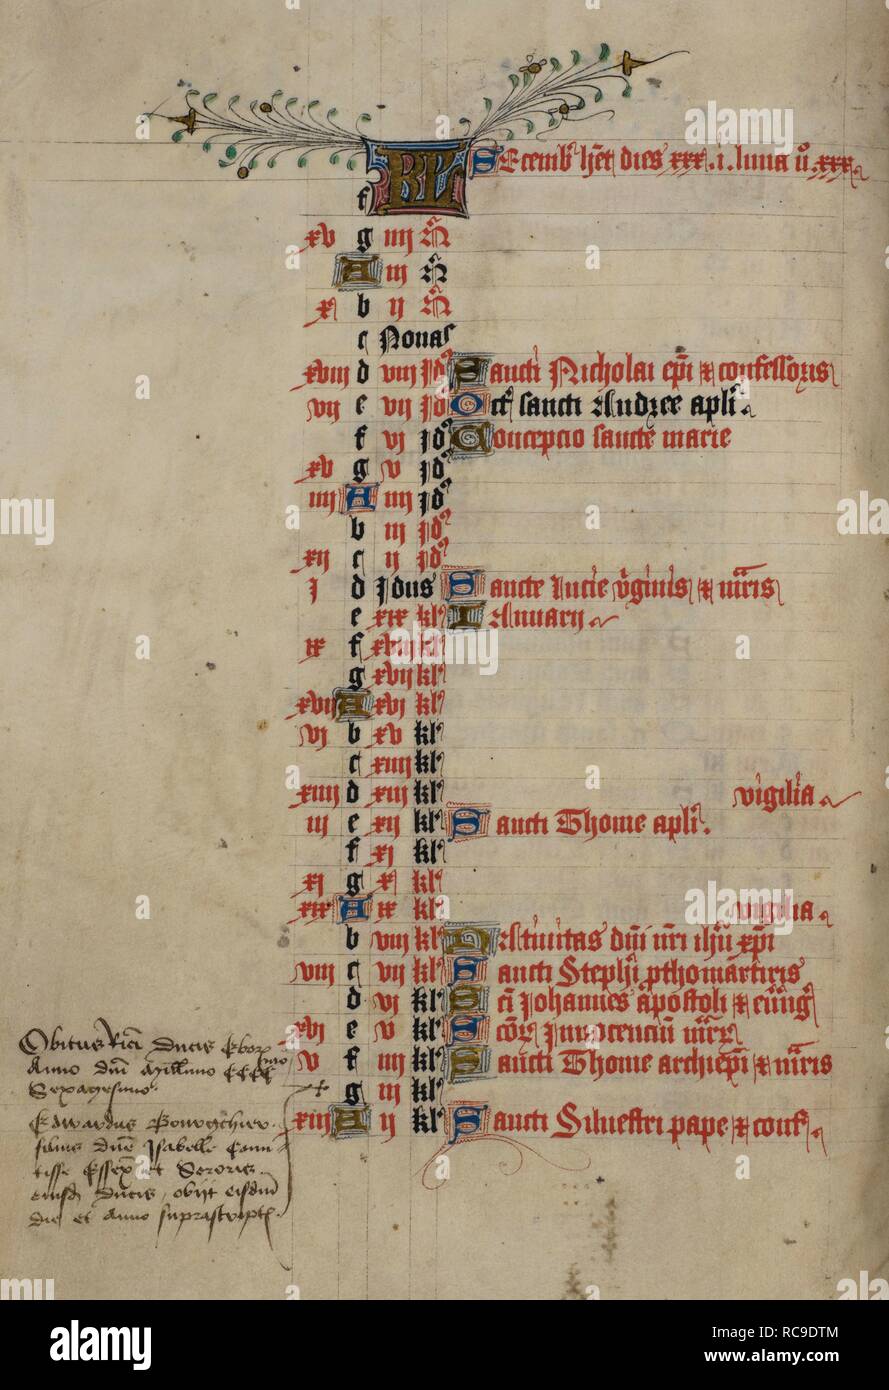 KL Decemb' h'et dies xxx.i. luna v'o xxx
f
xv g iiij N'
A iij N'
x b ij N'
c Nonas
xviij d viij Jd' Sancti Nicholai ep'i & confessoris
vij e vij Jd' Oct' sancti Andree apl'i.
f vj Jd' Concepcio sancte marie
xv g v Jd'
iiij A iiij Jd'
b iij Jd'
xij c ij Jd'
j d Jdus Sancte lucie v'ginis & m'ris
e xix kl' Ianuarij
ix f xviij kl'
g xvij kl'
xvij A xvj kl'
vj b xv kl'
c xiiij kl'
xiiij d xiij kl' vigilia
iij e xij kl' Sancti Thome apl'i.
f xj kl'
xj g x kl'
xix A ix kl' vigilia
b viij kl' Natiuitas d'ni n'ri ih'u xp'i
viij c vij kl' Sancti Steph'i p'thomartiris
d vj kl' Sc'i Johannes apostoli & euu'ng'
xvj e v kl' Sc'or' Innocenciu' m'r'
v f iiij kl' Sancti Thome archiep'i & m'ris
g iij kl'
xiij A ij kl' Sancti Siluestri pape & conf'.
Obitus Ric'i Ducis Ebor'
Anno d'ni Mill'mo CCCC mo
Sexagesimo.
Edwardus Bowgchier.
filius d'ne Isabelle Com'i
tisse Essex' et Sororis
eiusd' Ducis, obijt eisd'm
die et Anno suprascript'.
alamy
Image ID: RC9DTM
www.alamy.com